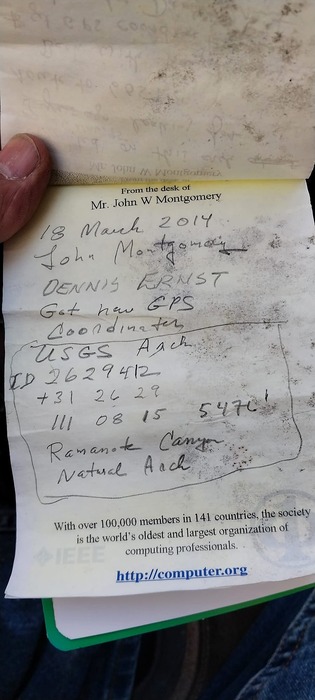 From the desk of
Mr. John W Montgomery
18 March 2014
John Montgomery
DENNIS ERNST
Got new GPS
Coordinates
USGS Arch
ID 2629412
+31 26 29
111 08 15 5476'
Ramanote Canyon
Natural Arch
With over 100,000 members in 141 countries, the society
is the world's oldest and largest organization of
computing professionals.
IEEE
http://computer.org